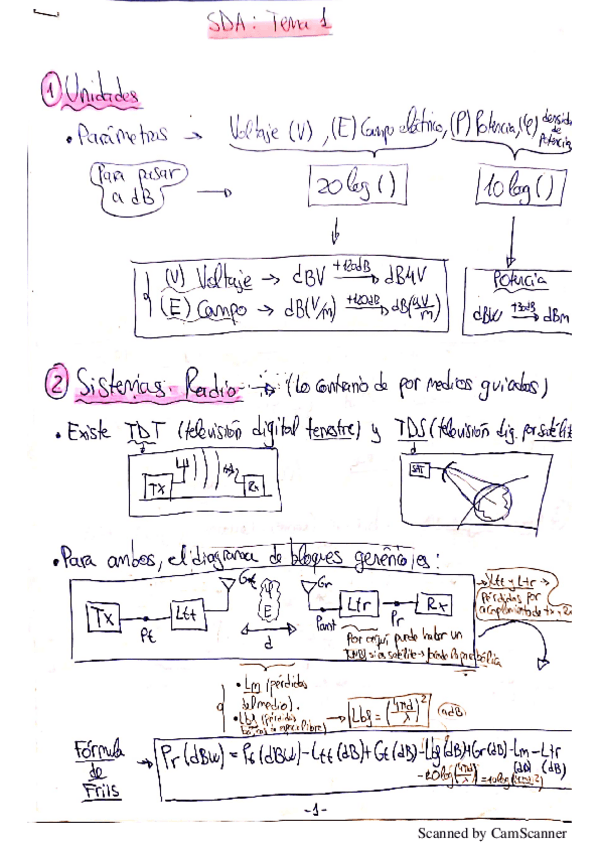 SDA: Tema 1
① Unidades
• Parámetros → Voltaje (V), (E) Campo eléctrico, (P) Potencia, (φ) densid de Potencia
Para pasar a dB → 20 log ( ) 10 log ( )
(V) Voltaje → dBV +120dB→ dBμV
(E) Campo → dB(V/m) +120dB→ dB(μV/m)
Potencia
dBW +30dB→ dBm
② Sistemas Radio → (Lo contrario de por medios guiados)
• Existe TDT (televisión digital terrestre) y TDS (televisión dig. por satélit
TX Rx
SAT
• Para ambos, el diagrama de bloques genérico es:
Tx Pt Ltt Gt φ E d Gr Pant Ltr Pr Rx
Ltt y Ltr →
Pérdidas por
acoplamiento de tx y Rx
Por aquí puede haber un
• Lm (pérdidas
del medio).
• Lbf (pérdidas
→ Lbf = (4πd/λ)² (dB)
Fórmula de Friis → Pr (dBW) = Pt (dBW) - Ltt (dB) + Gt (dB) - Lbf (dB) + Gr (dB) - Lm - Ltr
(dB) (dB)
-20 log (4πd/λ)
-1-
Scanned by CamScanner